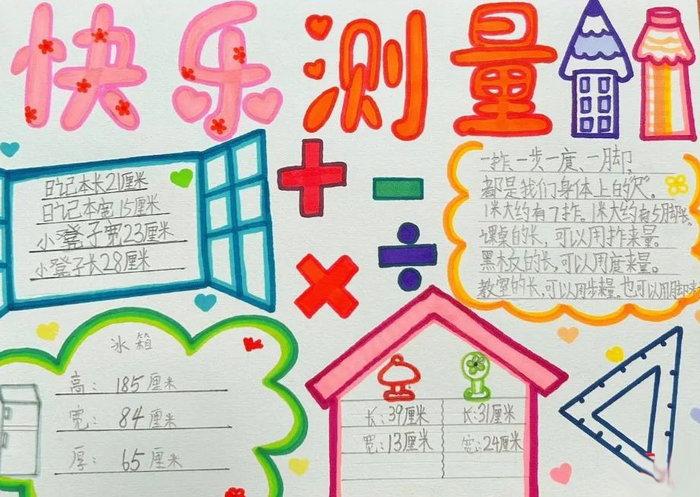 快乐测量
日记本长21厘米
日记本宽15厘米
小凳子宽23厘米
小凳子长28厘米
一拃、一步、一度、一脚,
都是我们身体上的尺。
1米大约有7拃。1米大约有5脚长。
课桌的长,可以用拃来量。
黑板的长,可以用度来量。
教室的长,可以用步来量。也可以用脚
冰箱
高:185厘米
宽:84厘米
厚:65厘米
长:39厘米
宽:13厘米
长:31厘米
宽:24厘米